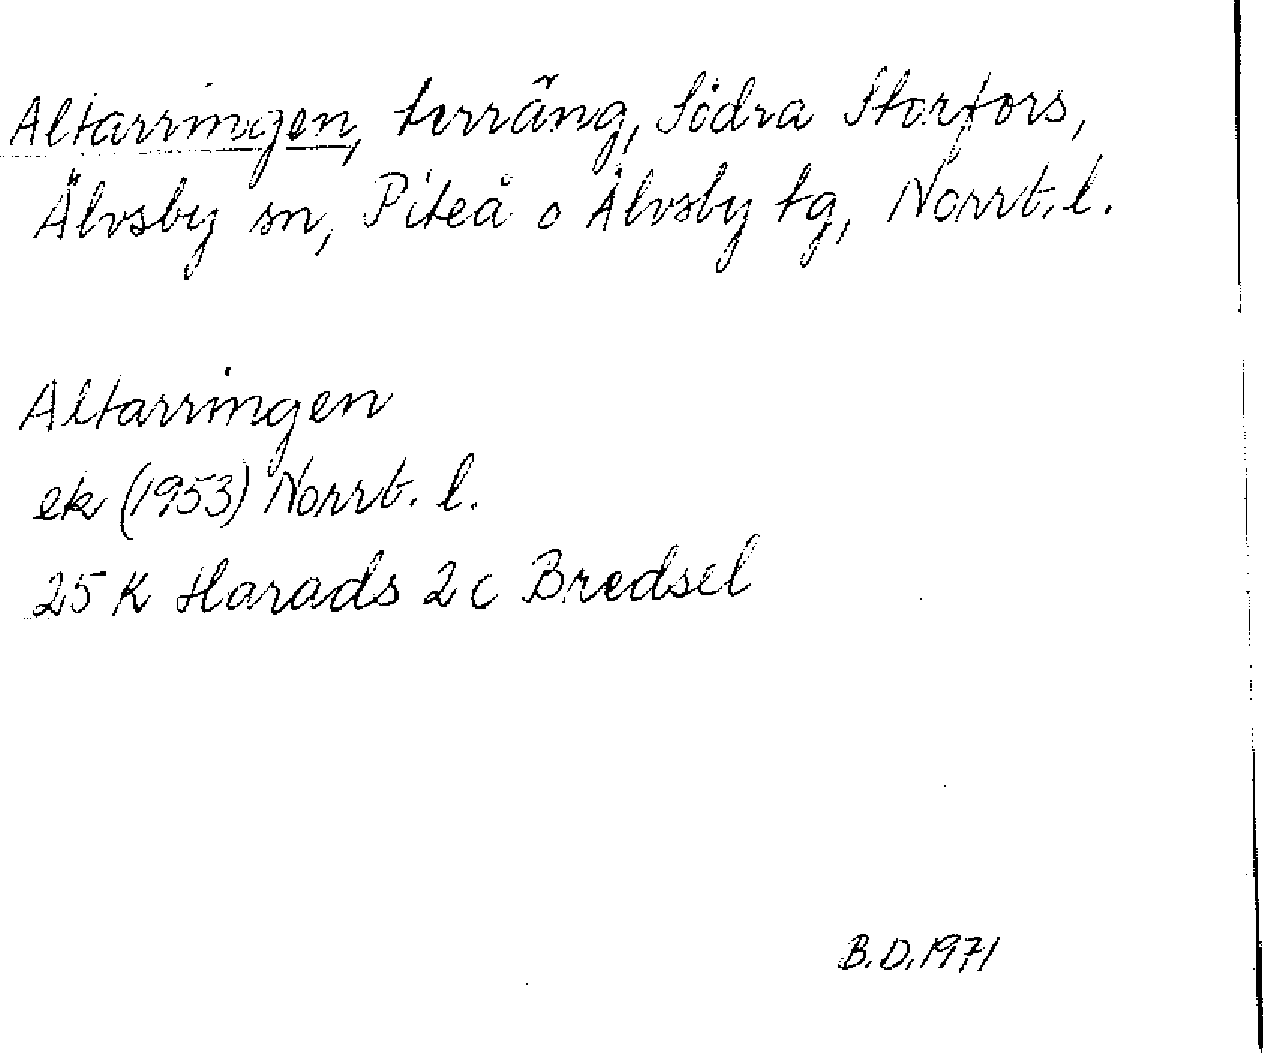 Altarringen, terräng, Södra Storfors,
Älvsby sn, Piteå o Älvsby tg, Norrb. l.
Altarringen
ek (1953) Norrb. l.
25 K Harads 2 c Bredsel
B.D. 1971